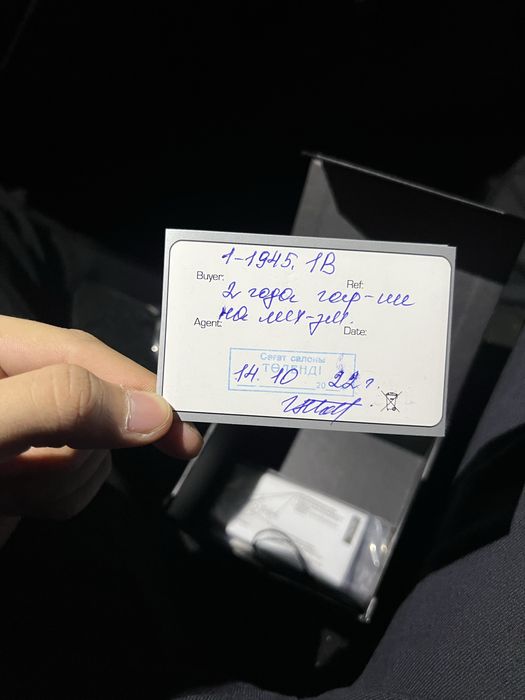 1-1945.1B
Buyer: Ref:
2 года гар-ии
Agent: на мех-зм. Date:
Сағат салоны
ТӨЛЕНДІ
14. 10 2022 г.